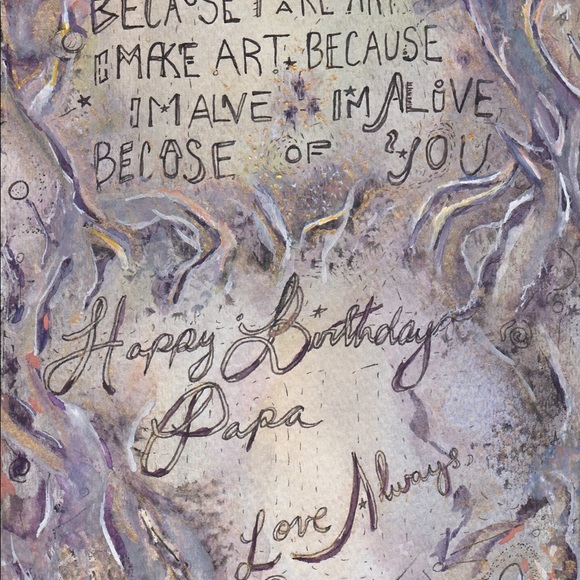 BECAUSE I MAKE ART
I MAKE ART. BECAUSE
IM ALIVE IM ALIVE
BECAUSE OF YOU
Happy Birthday
Papa
Love Always,